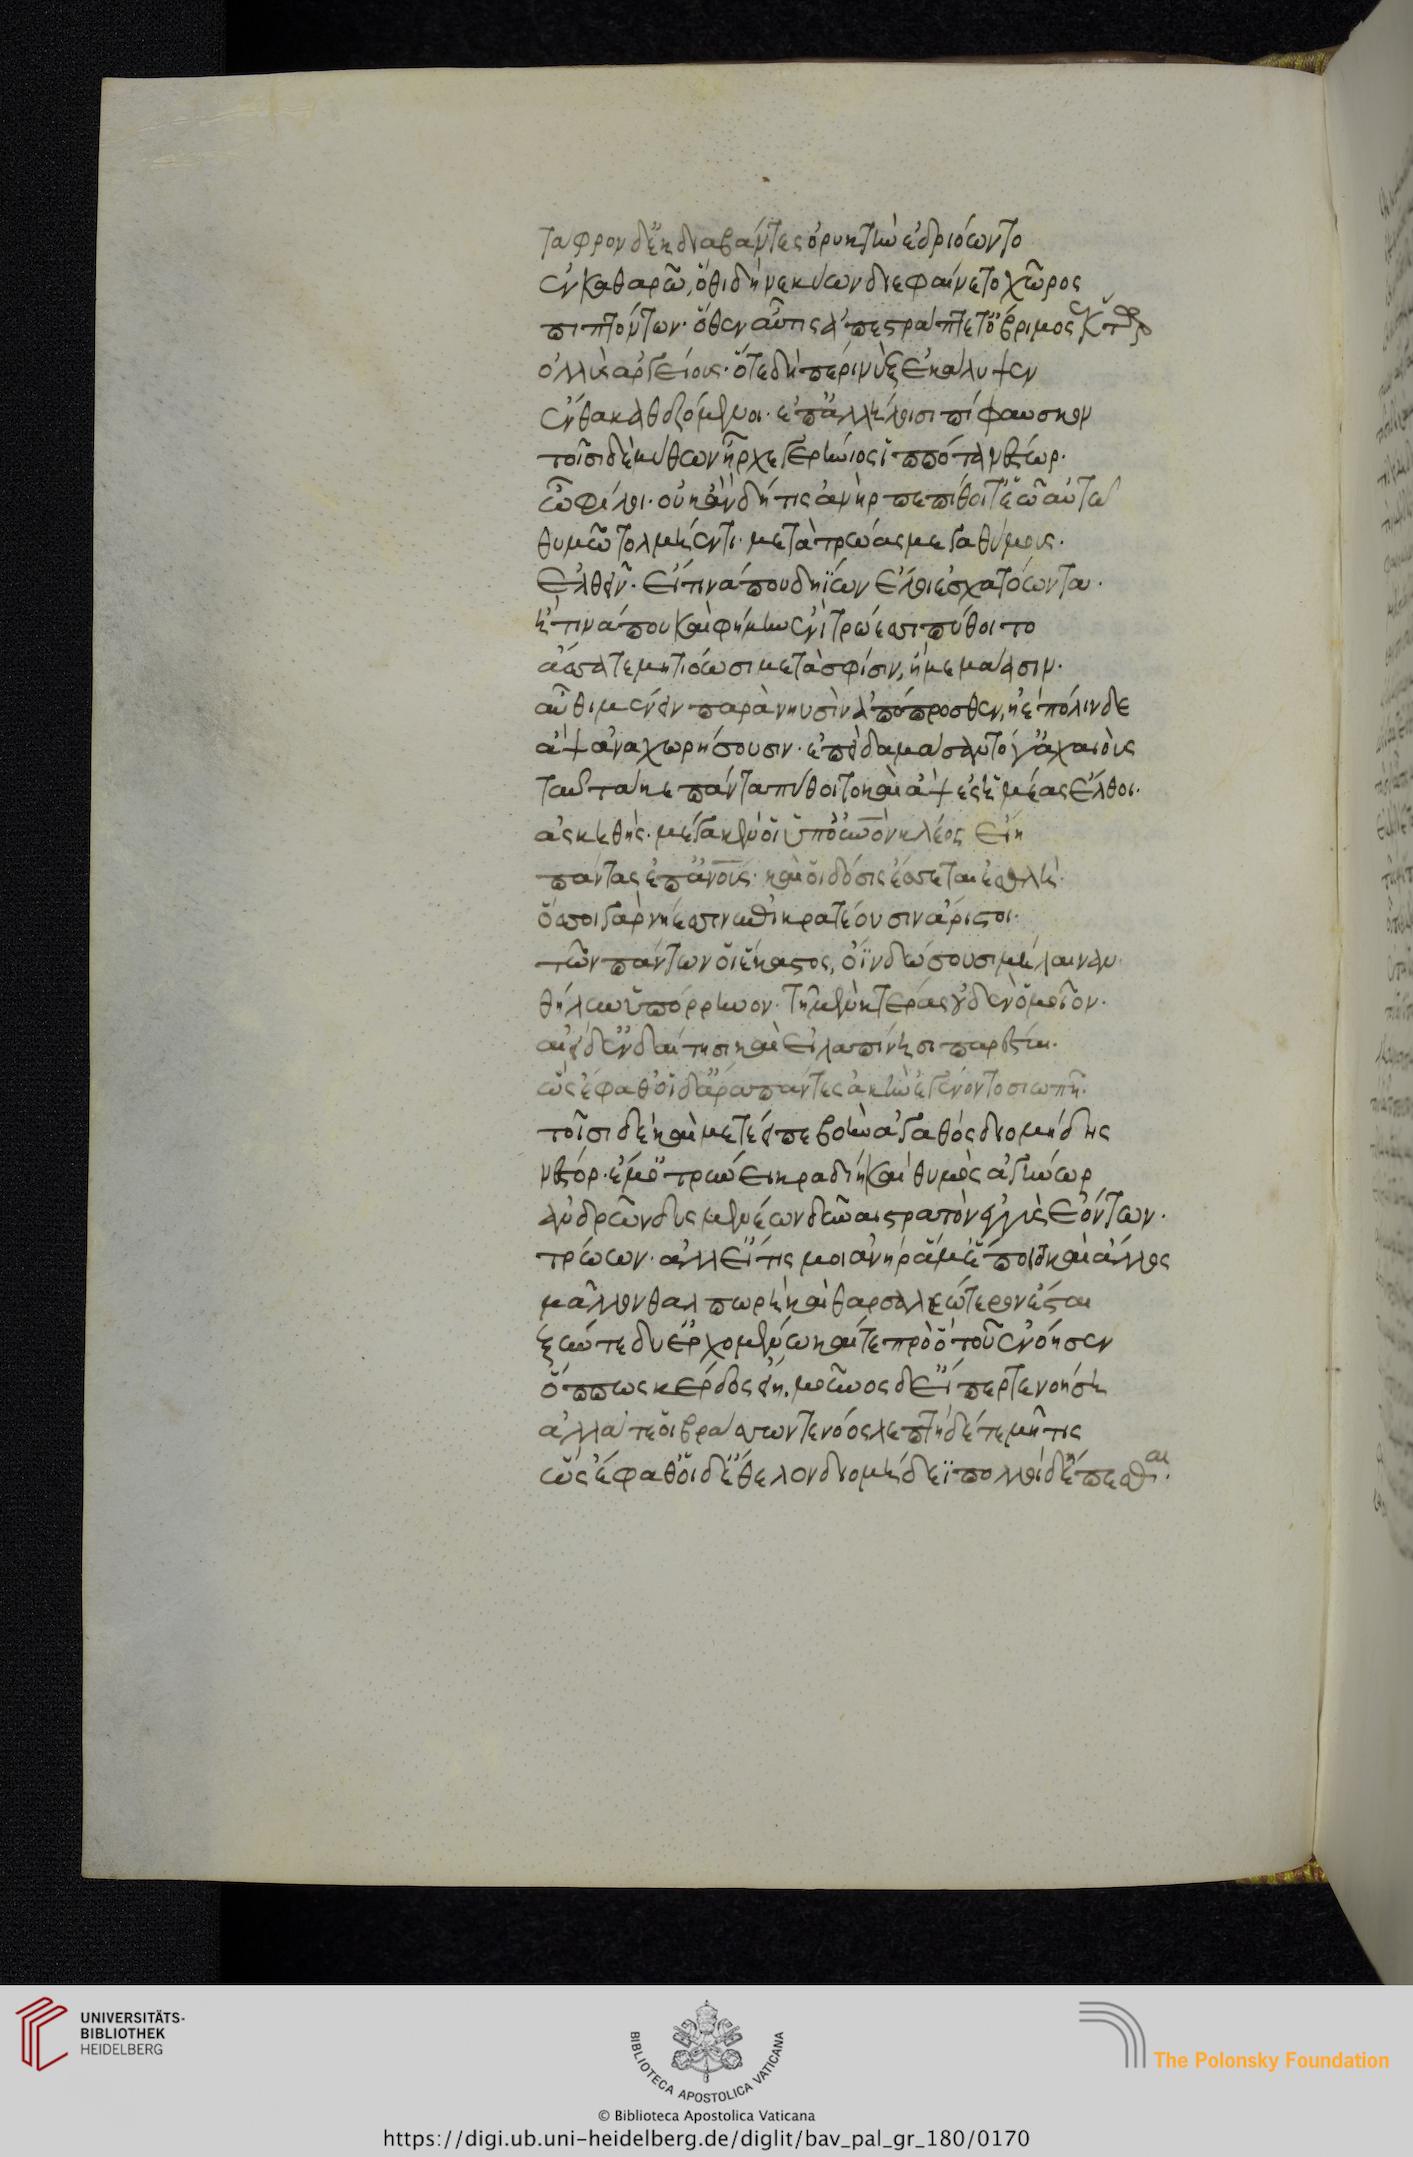 τάφρον δ' ἐκδιαβάντες ὀρυκτὴν ἑδριόωντο
ἐν καθαρῶ, ὅθι δὴ νεκύων διεφαίνετο χῶρος
πιπτόντων· ὅθεν αὖτις ἀπετράπετ' ὄβριμος ἕκτωρ
ὀλλὺς ἀργείους· ὅτε δὴ περὶ νὺξ ἐκάλυψεν
ἔνθα καθεζόμενοι· ἔπε' ἀλλήλοισι πίφαυσκον
τοῖσι δὲ μύθων ἦρχε γερήνιος ἱππότα νέστωρ·
ὦ φίλοι· οὐκ ἂν δή τις ἀνὴρ πεπίθοιθ' ἑῶ αὐτῶ
θυμῶ τολμήεντι· μετὰ τρῶας μεγαθύμους·
ἐλθεῖν· εἴ τινά που δηΐων ἕλοι ἐσχατόωντα·
ἤ τινά που καὶ φήμιν ἐνὶ τρώεσσι πύθοιτο
ἅσσά τε μητιόωσι μετὰ σφίσιν, ἢ μεμάασιν·
αὖθι μένειν παρὰ νηυσὶν ἀπόπροσθεν, ἠὲ πόλινδε
ἂψ ἀναχωρήσουσιν· ἐπεὶ δαμάσαντό γ' ἀχαιοὺς
ταῦτά κε πάντα πύθοιτο καὶ ἂψ εἰς ἡμέας ἔλθοι·
ἀσκηθής· μέγα κέν οἱ ὑπ' οὐνὸν κλέος εἴη
πάντας ἐπ' ἀνους· καί οἱ δόσις ἔσσεται ἐσθλή·
ὅσσοι γὰρ νήεσσιν ἐπικρατέουσιν ἄριστοι·
τῶν πάντων οἱ ἕκαστος, ὄϊν δώσουσι μέλαιναν·
θῆλυν ὑπόρρηνον· τῆ μὲν κτέρας οὐδὲν ὁμοῖον·
αἰεὶ δ' ἐν δαίτησι καὶ εἰλαπίνησι παρέσται·
ὣς ἔφαθ' οἱ δ' ἄρα πάντες ἀκὴν ἐγένοντο σιωπῆ·
τοῖσι δὲ καὶ μετέειπε βοὴν ἀγαθὸς διομήδης
νέστορ· ἔμ' ὀτρύνει κραδίη καὶ θυμὸς ἀγήνωρ
ἀνδρῶν δυσμενέων δῦναι στρατὸν ἐγγὺς ἐόντων·
τρώων· ἀλλ' εἴ τίς μοι ἀνὴρ ἅμ' ἕποιτο καὶ ἄλλος
μᾶλλον θαλπωρὴ καὶ θαρσαλεώτερον ἔσται
ξύν τε δύ' ἐρχομένω καί τε πρὸ ὃ τοῦ ἐνόησεν
ὅππως κέρδος ἔη. μοῦνος δ' εἴ πέρ τε νοήση
ἀλλά τέ οἱ βράσσων τε νόος λεπτὴ δέ τε μῆτις
ὣς ἔφαθ' οἱ δ' ἔθελον διομήδεϊ πολλοὶ ἕπεσθαι·
UNIVERSITÄTS-
BIBLIOTHEK
HEIDELBERG
BIBLIOTECA APOSTOLICA VATICANA
The Polonsky Foundation
© Biblioteca Apostolica Vaticana
https://digi.ub.uni-heidelberg.de/diglit/bav_pal_gr_180/0170